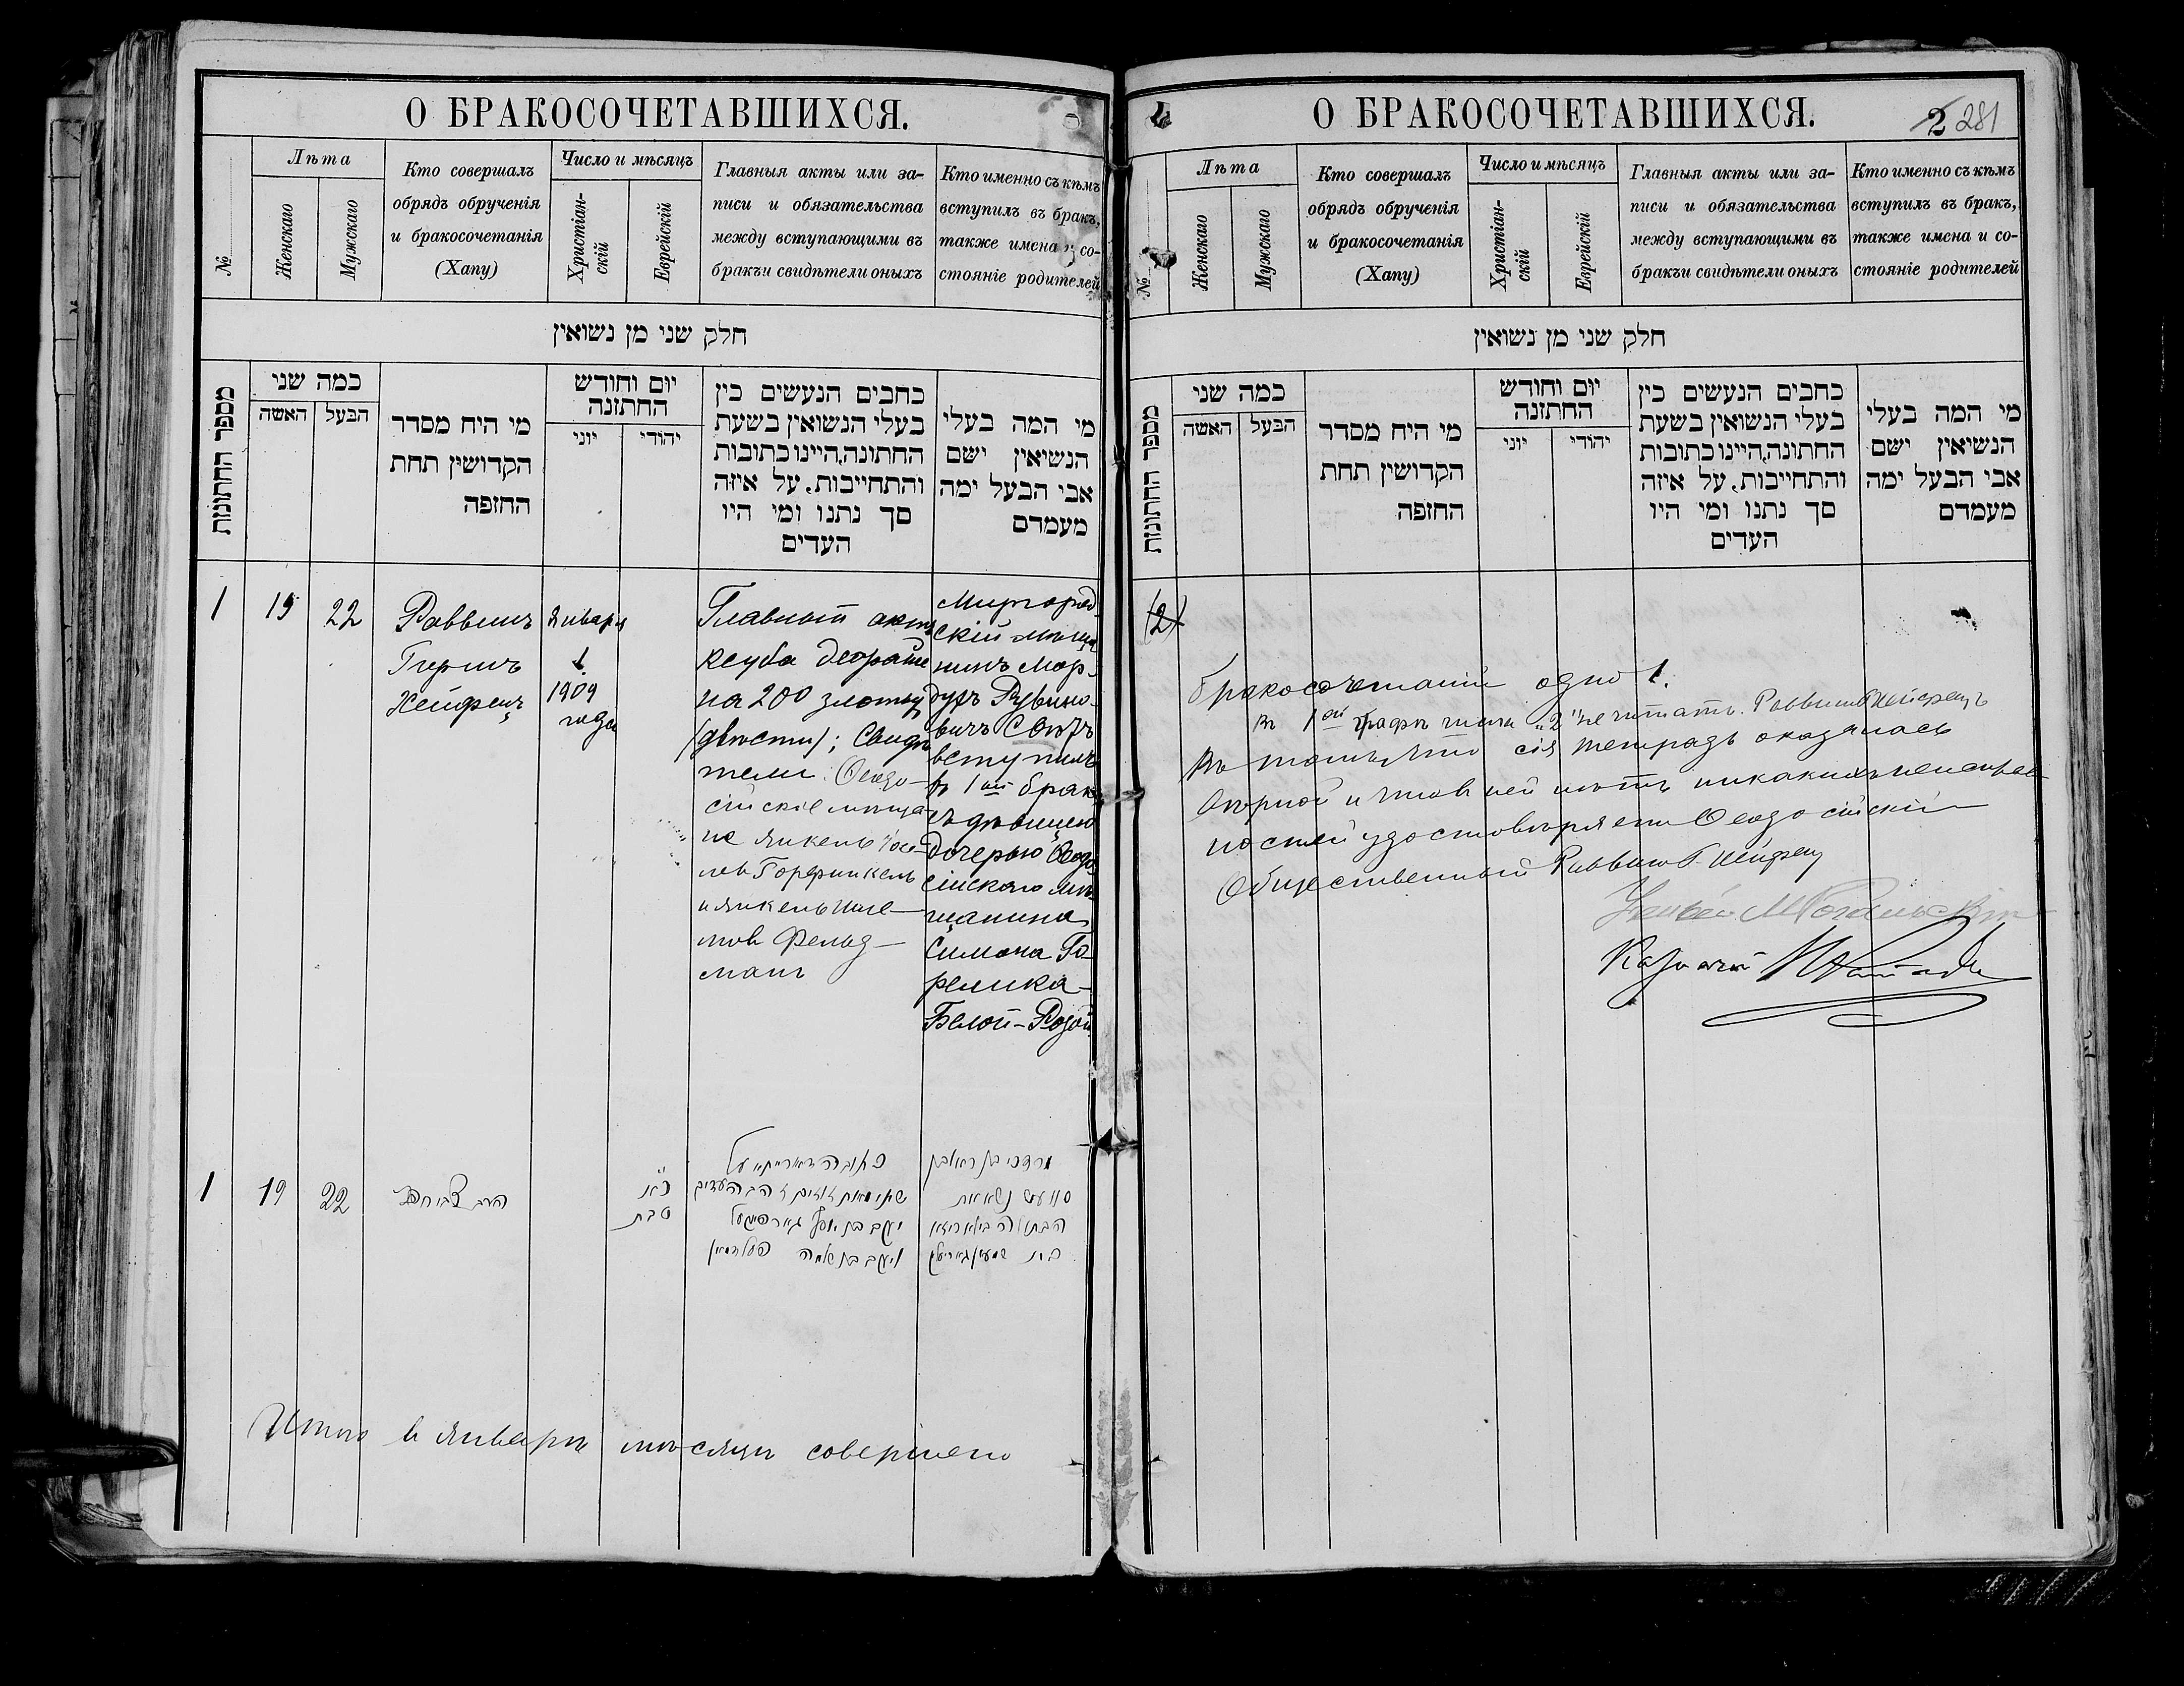 О БРАКОСОЧЕТАВШИХСЯ.
№
Лѣта
Женскаго
Мужскаго
Кто совершалъ
обрядъ обрученія
и бракосочетанія
(Хапу)
Число и мѣсяцъ
Христіан-
скій
Еврейскій
Главныя акты или за-
писи и обязательства
между вступающими въ
бракъи свидѣтели оныхъ
Кто именно съ кѣмъ
вступилъ въ бракъ,
также имена и со-
стояніе родителей
חלק שני מן נשואין
מספר החתונות
כמה שני
האשה
הבעל
מי היח מסדר
הקדושין תחת
החזפה
יום וחודש
החתזנה
יוני
יהודי
כחבים הנעשים כין
בעלי הנשואין בשעת
החתונה,היינו כתובות
והתחייבות, על איזה
סך נתנו ומי היו
העדים
מי המה בעלי
הנשיאין ישם
אבי הבעל ימה
מעמדם
1
19
22
Раввинъ
Гиршъ
Хейфецъ
Января
1
1909
года
Главный актъ
Ксуба деорайте
на 200 злотыхъ
(двѣсти); Свидѣ-
тели: Ѳеодо-
сійскіе мѣща-
не Янкель Іосе-
левъ Горфинкель
и Янкель Шле-
мовъ Фельд-
манъ
Миргород-
скій мѣща-
нинъ Мор-
духъ Рувино-
вичъ
вступилъ
в 1ый бракъ
съ дѣвицею
дочерью Ѳеодо-
сійскаго мѣ-
щанина
Симона Го-
релика-
Белой-Розой
1
19
22
הרב צבי חפץ
טבת
כתובה דאורייתא על
שתי מאות זוזים והעדים
יעקב בן יוסף גארפינקעל
ויעקב בן שלמה פעלדמאן
מרדכי בן ראובן
נשא את
הבתולה ביילא רייזא
בת שמעון גארעליק
Итого в Январѣ мѣсяцѣ совершено
О БРАКОСОЧЕТАВШИХСЯ.
2 281
№
Лѣта
Женскаго
Мужскаго
Кто совершалъ
обрядъ обрученія
и бракосочетанія
(Хапу)
Число и мѣсяцъ
Христіан-
скій
Еврейскій
Главныя акты или за-
писи и обязательства
между вступающими въ
бракъи свидѣтели оныхъ
Кто именно съ кѣмъ
вступилъ въ бракъ,
также имена и со-
стояніе родителей
חלק שני מן נשואין
מספר החתונות
כמה שני
האשה
הבעל
מי היח מסדר
הקדושין תחת
החזפה
יום וחודש
החתזנה
יוני
יהודי
כחבים הנעשים כין
בעלי הנשואין בשעת
החתונה,היינו כתובות
והתחייבות, על איזה
סך נתנו ומי היו
העדים
מי המה בעלי
הנשיאין ישם
אבי הבעל ימה
מעמדם
(2)
бракосочетаній одно 1.
въ 1ой графѣ числа „2" не читать. Раввинъ Г. Хейфецъ
Въ томъ, что сія тетрадь оказалась
вѣрной и что въ ней нѣтъ никакихъ неисправ-
ностей удостовѣряетъ Ѳеодосійскій
Общественный Раввинъ Г. Хейфец
Казначей